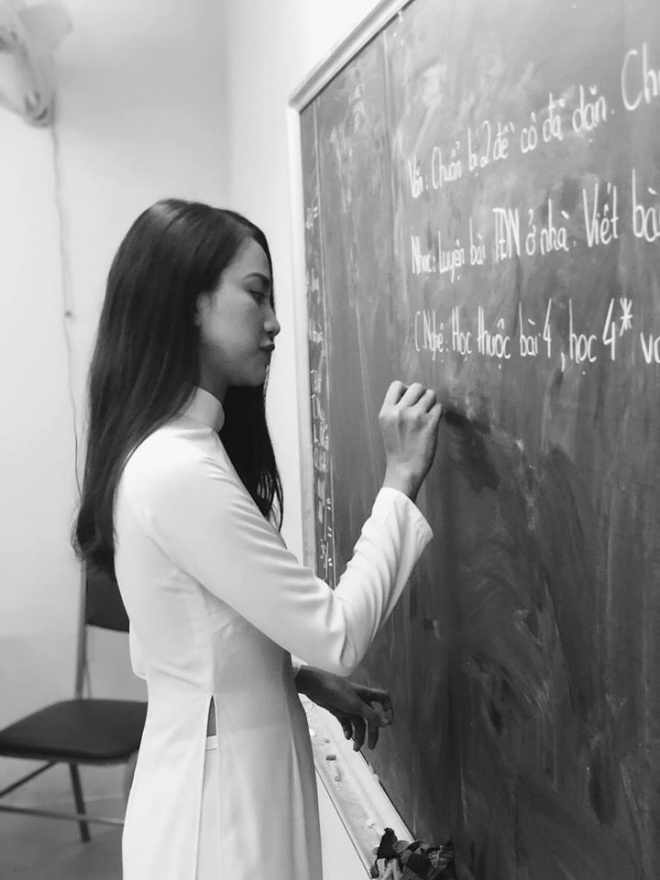 Văn: Chuẩn bị 2 đề cô đã dặn. Ch
Nhạc: Luyện bài TĐN ở nhà. Viết bà
CNghệ: Học thuộc bài 4, học 4* và